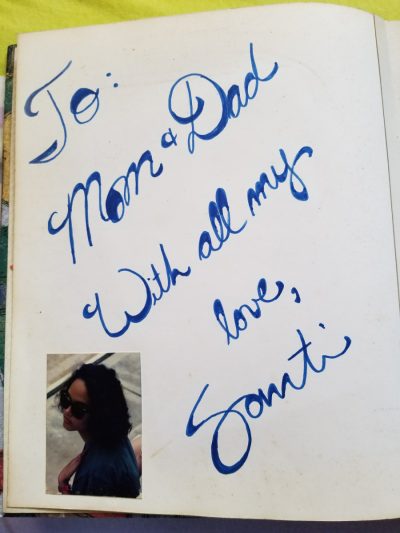 To:
Mom & Dad
With all my
love,
Santi